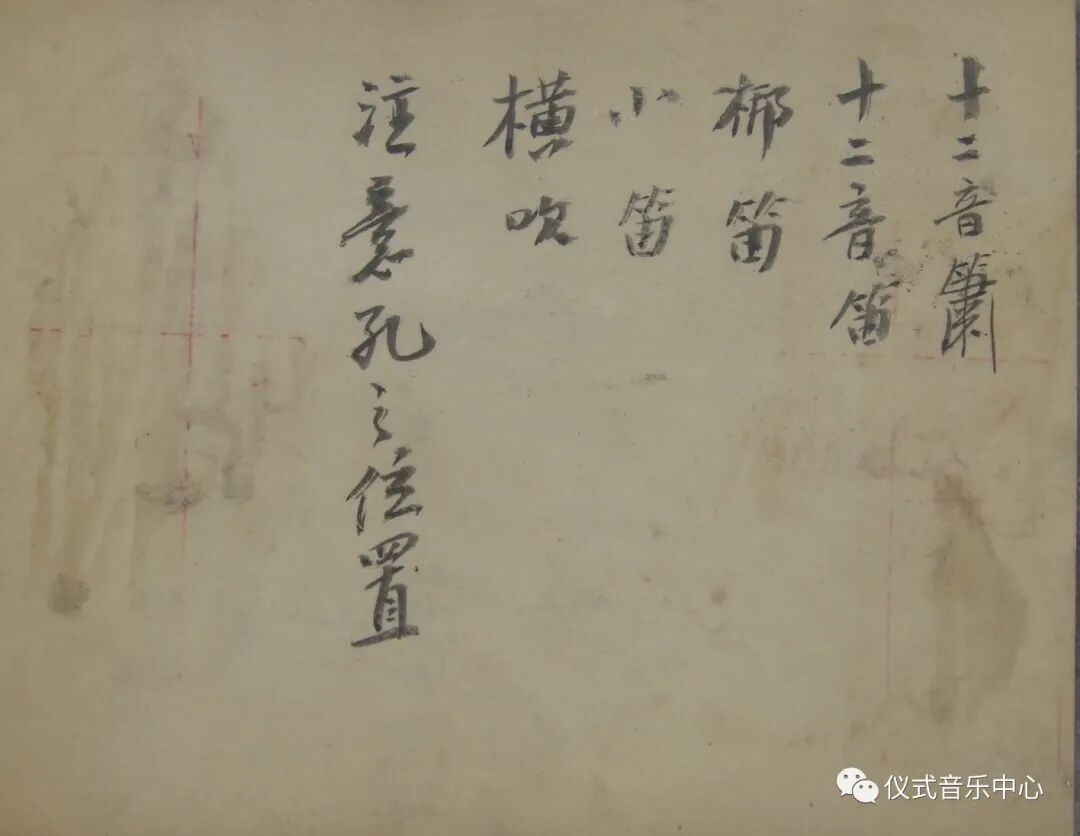 十二音簫
十二音笛
梆笛
小笛
横吹
注意孔之位置
仪式音乐中心